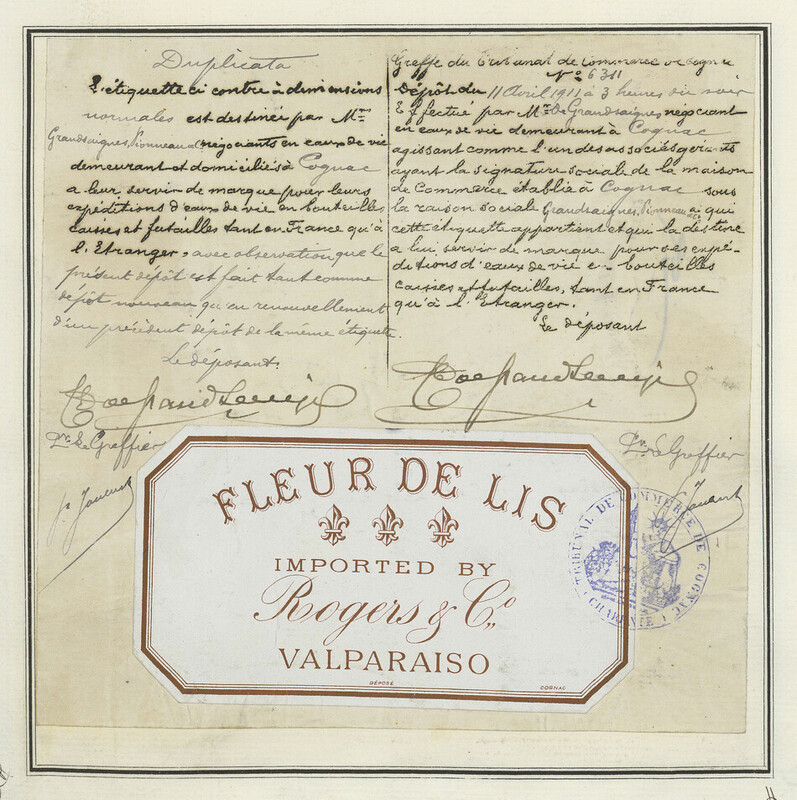 Duplicata
L'étiquette ci contre à dimensions
normales est destinée par M.rs
Grandsaignes, Pionneau & négociants en eaux de vie
demeurant et domiciliés à Cognac
a leur servir de marque pour leurs
expéditions d'eaux de vie en bouteilles
caisses et futailles tant en France qu'à
l'Etranger, avec observation que le
présent dépôt est fait tant comme
dépôt nouveau qu'en renouvellement
d'un précédent dépôt de la même étiquette.
Le déposant.
Pr. Le Greffier
Greffe du Tribunal de Commerce de Cognac
N.o 6311
Dépôt du 11 Avril 1911 à 3 heures du soir
Effectué par M. De Grandsaignes négociant
en eaux de vie demeurant à Cognac
agissant comme l'un des associés gérants
ayant la signature sociale de la maison
de Commerce établie à Cognac sous
la raison sociale Grandsaignes, Pionneau & à qui
cette étiquette appartient et qui la destine
a lui servir de marque pour ses expé-
ditions d'eaux de vie en bouteilles
caisses et futailles, tant en France
qu'à l'Etranger.
Le déposant
Pr. Le Greffier
FLEUR DE LIS
IMPORTED BY
Rogers & Co
VALPARAISO
DÉPOSÉ
COGNAC
TRIBUNAL DE COMMERCE DE COGNAC
(CHARENTE)